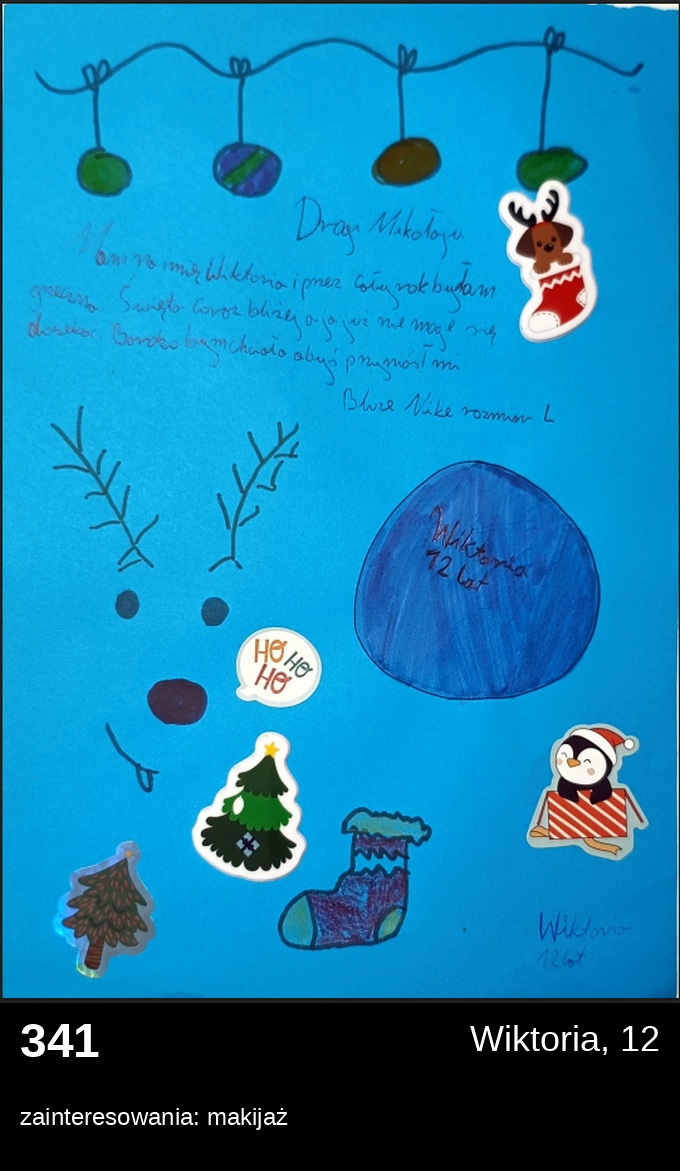 Drogi Mikołaju
Mam na imię Wiktoria i przez cały rok byłam
grzeczna. Święta coraz bliżej a ja już nie mogę się
doczekać. Bardzo bym chciała abyś przyniósł mi
Bluze Nike rozmiar L
Wiktoria
12 lat
HO HO
HO
Wiktoria
12 lat
341
Wiktoria, 12
zainteresowania: makijaż